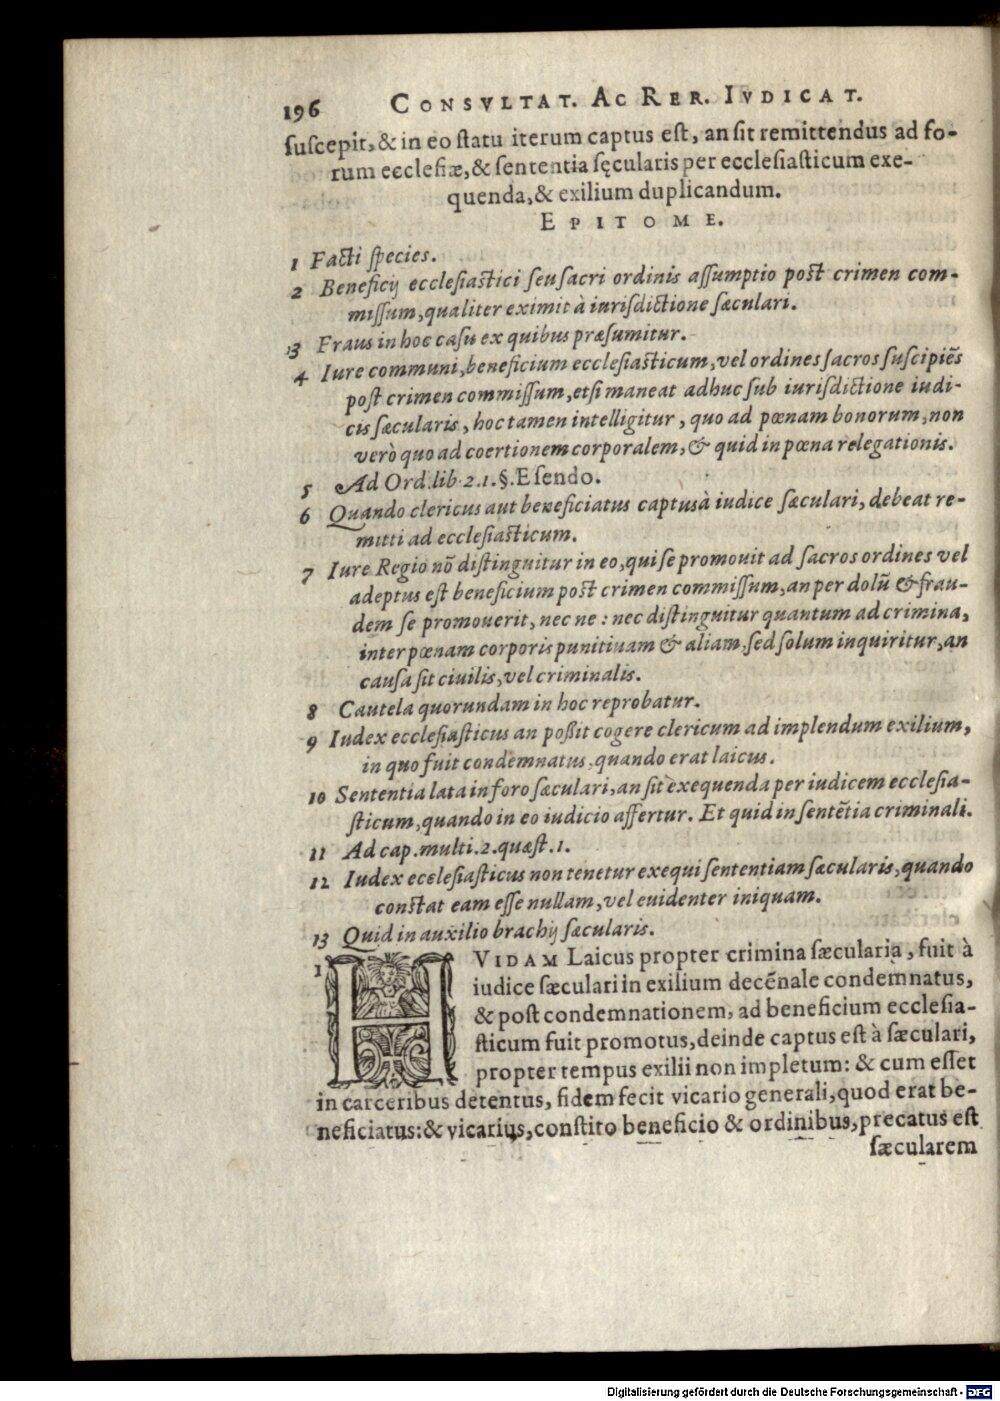 196 CONSVLTAT. AC RER. IVDICAT.
ſuſcepit, & in eo ſtatu iterum captus eſt, an ſit remittendus ad fo-
rum eccleſiæ, & ſententia ſęcularis per eccleſiaſticum exe-
quenda, & exilium duplicandum.
EPITOME.
1 Facti ſpecies.
2 Beneficij eccleſiaſtici ſeu ſacri ordinis aſſumptio poſt crimen com-
miſſum, qualiter eximit à iuriſdictione ſæculari.
3 Fraus in hoc caſu ex quibus præſumitur.
4 Iure communi, beneficium eccleſiaſticum, vel ordines ſacros ſuſcipiẽs
poſt crimen commiſſum, etſi maneat adhuc ſub iuriſdictione iudi-
cis ſæcularis, hoc tamen intelligitur, quo ad pœnam bonorum, non
verò quo ad coertionem corporalem, & quid in pœna relegationis.
5 Ad Ord. lib. 2. 1. §. E ſendo.
6 Quando clericus aut beneficiatus captus à iudice ſæculari, debeat re-
mitti ad eccleſiaſticum.
7 Iure Regio nõ diſtinguitur in eo, qui ſe promouit ad ſacros ordines vel
adeptus eſt beneficium poſt crimen commiſſum, an per dolũ & frau-
dem ſe promouerit, nec ne : nec diſtinguitur quantum ad crimina,
inter pœnam corporis punitiuam & aliam, ſed ſolum inquiritur, an
cauſa ſit ciuilis, vel criminalis.
8 Cautela quorundam in hoc reprobatur.
9 Iudex eccleſiaſticus an poßit cogere clericum ad implendum exilium,
in quo fuit condemnatus, quando erat laicus.
10 Sententia lata in foro ſæculari, an ſit exequenda per iudicem eccleſia-
ſticum, quando in eo iudicio affertur. Et quid in ſentẽtia criminali.
11 Ad cap. multi. 2. quæſt. 1.
12 Iudex eccleſiaſticus non tenetur exequi ſententiam ſæcularis, quando
conſtat eam eſſe nullam, vel euidenter iniquam.
13 Quid in auxilio brachij ſæcularis.
1 VIDAM Laicus propter crimina ſæcularia, fuit à
iudice ſæculari in exilium decẽnale condemnatus,
& poſt condemnationem, ad beneficium eccleſia-
ſticum fuit promotus, deinde captus eſt à ſæculari,
propter tempus exilii non impletum: & cum eſſet
in carceribus detentus, fidem fecit vicario generali, quod erat be-
neficiatus: & vicarius, conſtito beneficio & ordinibus, precatus eſt
ſæcularem
Digitalisierung gefördert durch die Deutsche Forschungsgemeinschaft - DFG